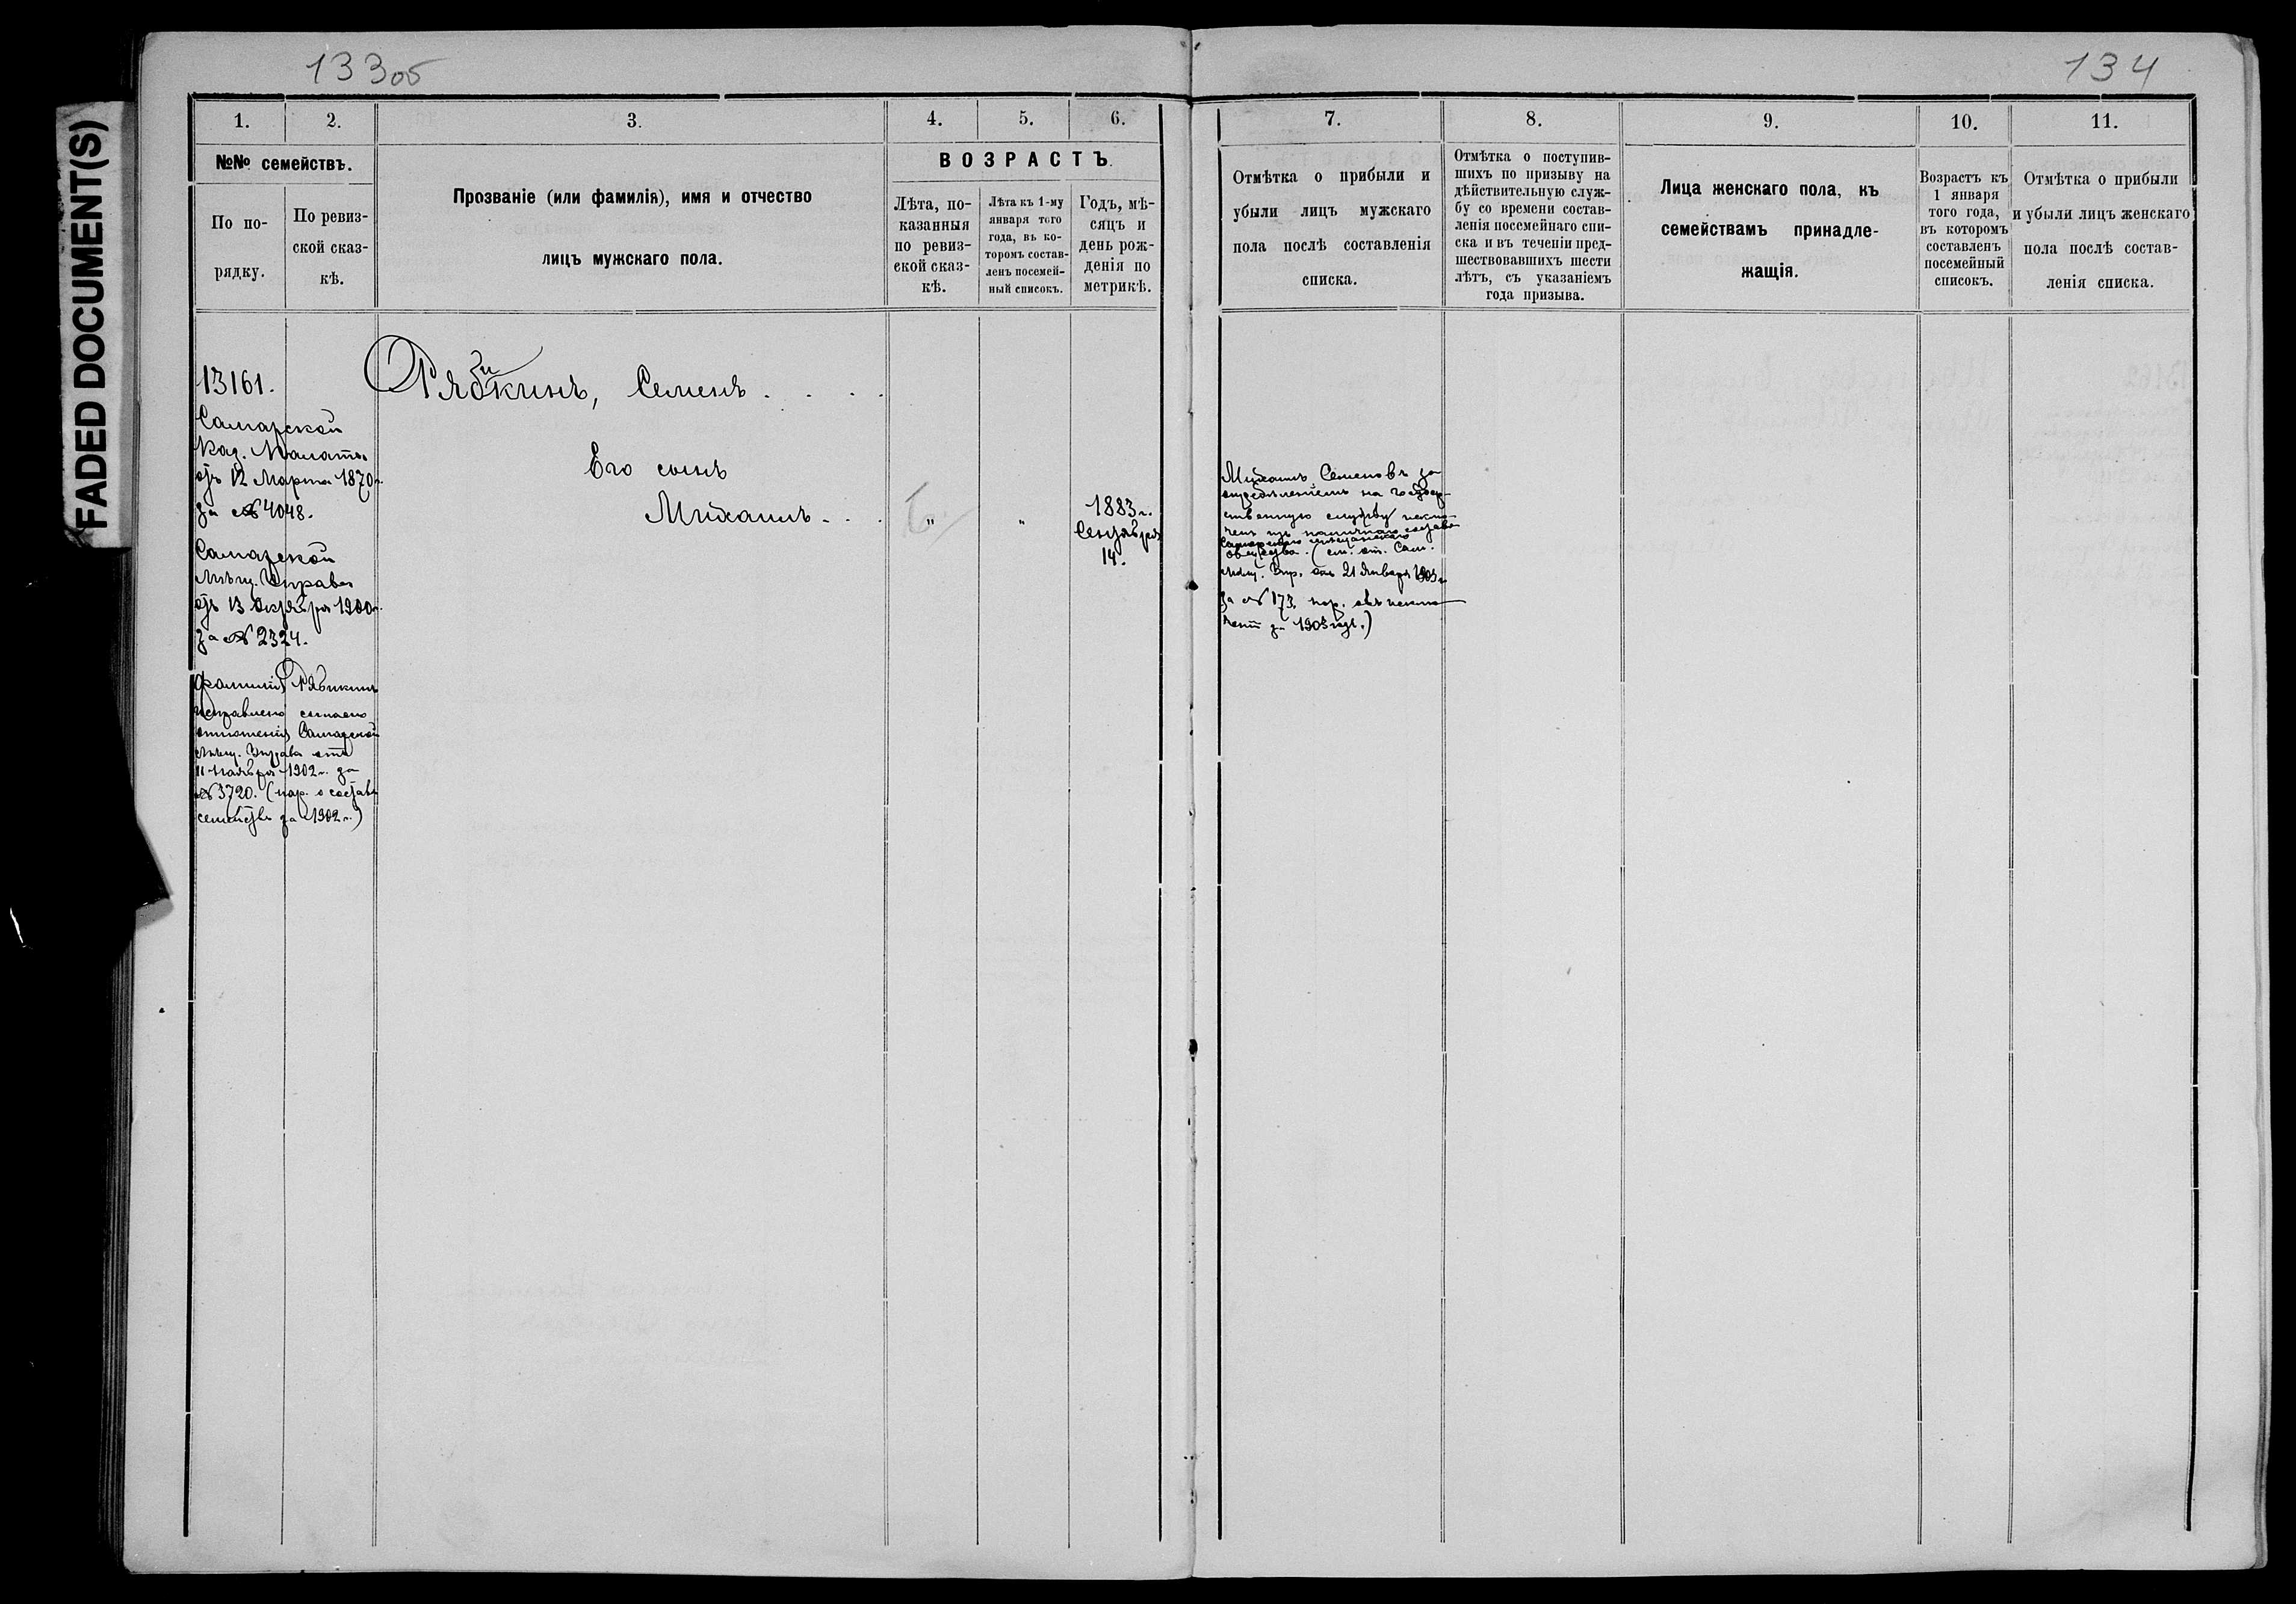 133об
134
FADED DOCUMENT(S)
1.
2.
3.
4.
5.
6.
№№ семействъ.
По по-
рядку.
По ревиз-
ской сказ-
кѣ.
Прозваніе (или фамилія), имя и отчество
лицъ мужскаго пола.
ВОЗРАСТЪ.
Лѣта, по-
казанныя
по ревиз-
ской сказ-
кѣ.
Лѣта къ 1-му
января того
года, въ ко-
торомъ состав-
ленъ посемей-
ный списокъ.
Годъ, мѣ-
сяцъ и
день рож-
денія по
метрикѣ.
7.
8.
9.
10.
11.
Отмѣтка о прибыли и
убыли лицъ мужскаго
пола послѣ составленія
списка.
Отмѣтка о поступив-
шихъ по призыву на
дѣйствительную служ-
бу со времени состав-
ленія посемейнаго спи-
ска и въ теченіи пред-
шествовавшихъ шести
лѣтъ, съ указаніемъ
года призыва.
Лица женскаго пола, къ
семействамъ принадле-
жащія.
Возрастъ къ
1 января
того года,
въ которомъ
составленъ
посемейный
списокъ.
Отмѣтка о прибыли
и убыли лицъ женскаго
пола послѣ состав-
ленія списка.
13161.
Самарской
Каз. Палаты
отъ 12 Марта 1870 г.
за № 4048.
Самарской
Мѣщ. Управы
отъ 13 Октября 1900 г.
за № 2324.
Фамилія Рябикинъ
исправлена согласно
отношенія Самарской
Мѣщ. Управы отъ
11 Ноября 1902 г. за
№ 3720. (нар. о составѣ
семействъ за 1902 г.)
и
Рябкинъ, Семенъ . . . .
Его сынъ
Михаилъ . . .
"
"
1883 г.
Сентября
14.
Михаилъ Семеновъ за
опредѣленіемъ на государ-
ственную службу исклю-
ченъ изъ наличнаго состава
Самарскаго мѣщанскаго
общества. (см. от. Сам.
Мѣщ. Упр. отъ 21 Января 1903 г.
за № 173, нар. объ исклю-
чен за 1903 годъ.)